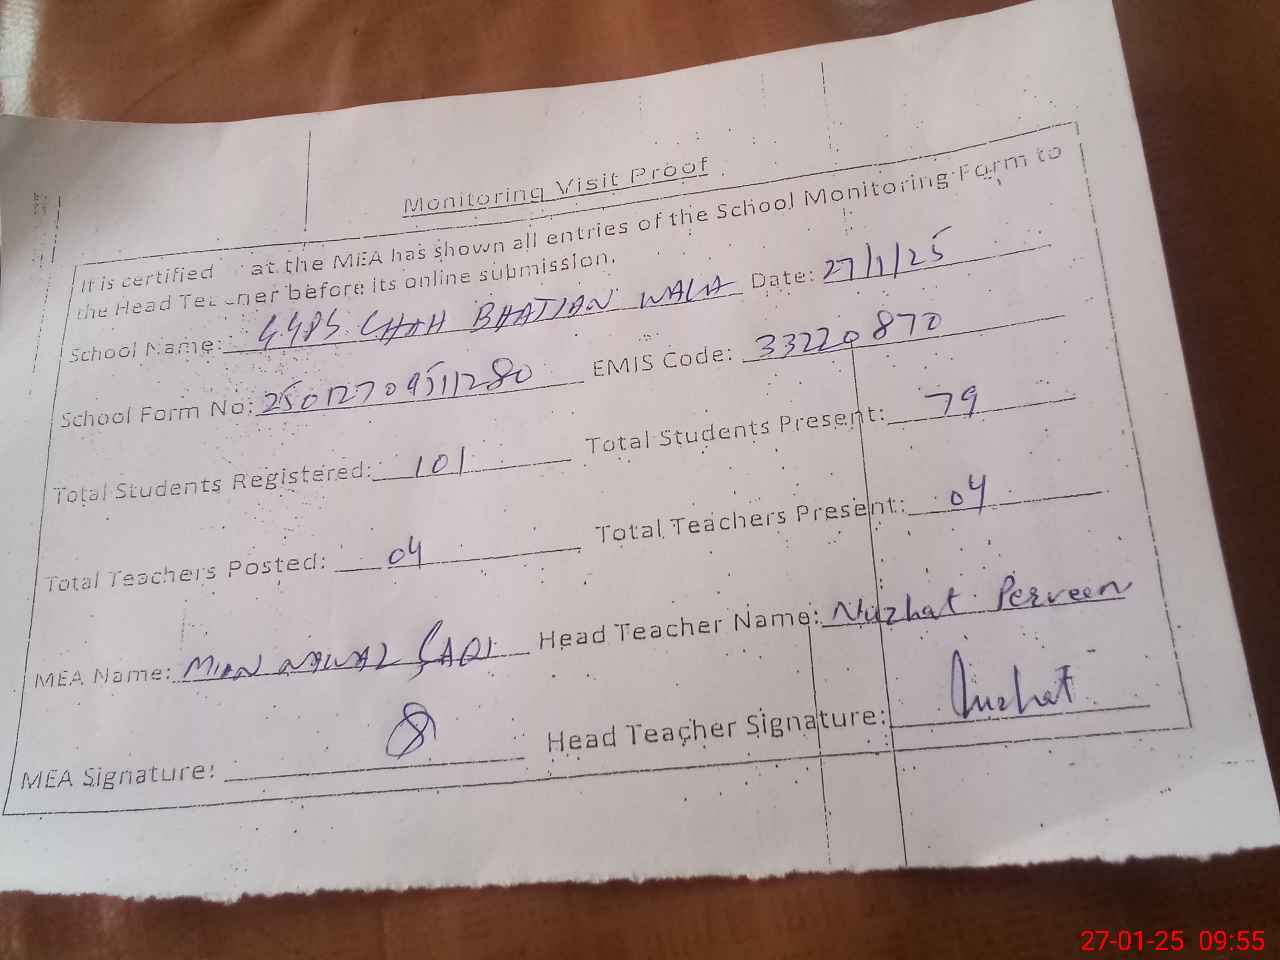 Monitoring Visit Proof
It is certified at the MEA has shown all entries of the School Monitoring Form to
the Head Teacher before its online submission.
School Name: GGPS CHAH BHATIAN WALA Date: 27/1/25
School Form No: 25012709511280 EMIS Code: 33220870
Total Students Registered: 101 Total Students Present: 79
Total Teachers Posted: 04 Total Teachers Present: 04
MEA Name: MIAN NAWAZ Head Teacher Name: Nuzhat Perveen
MEA Signature: Head Teacher Signature: Nuzhat
27-01-25 09:55